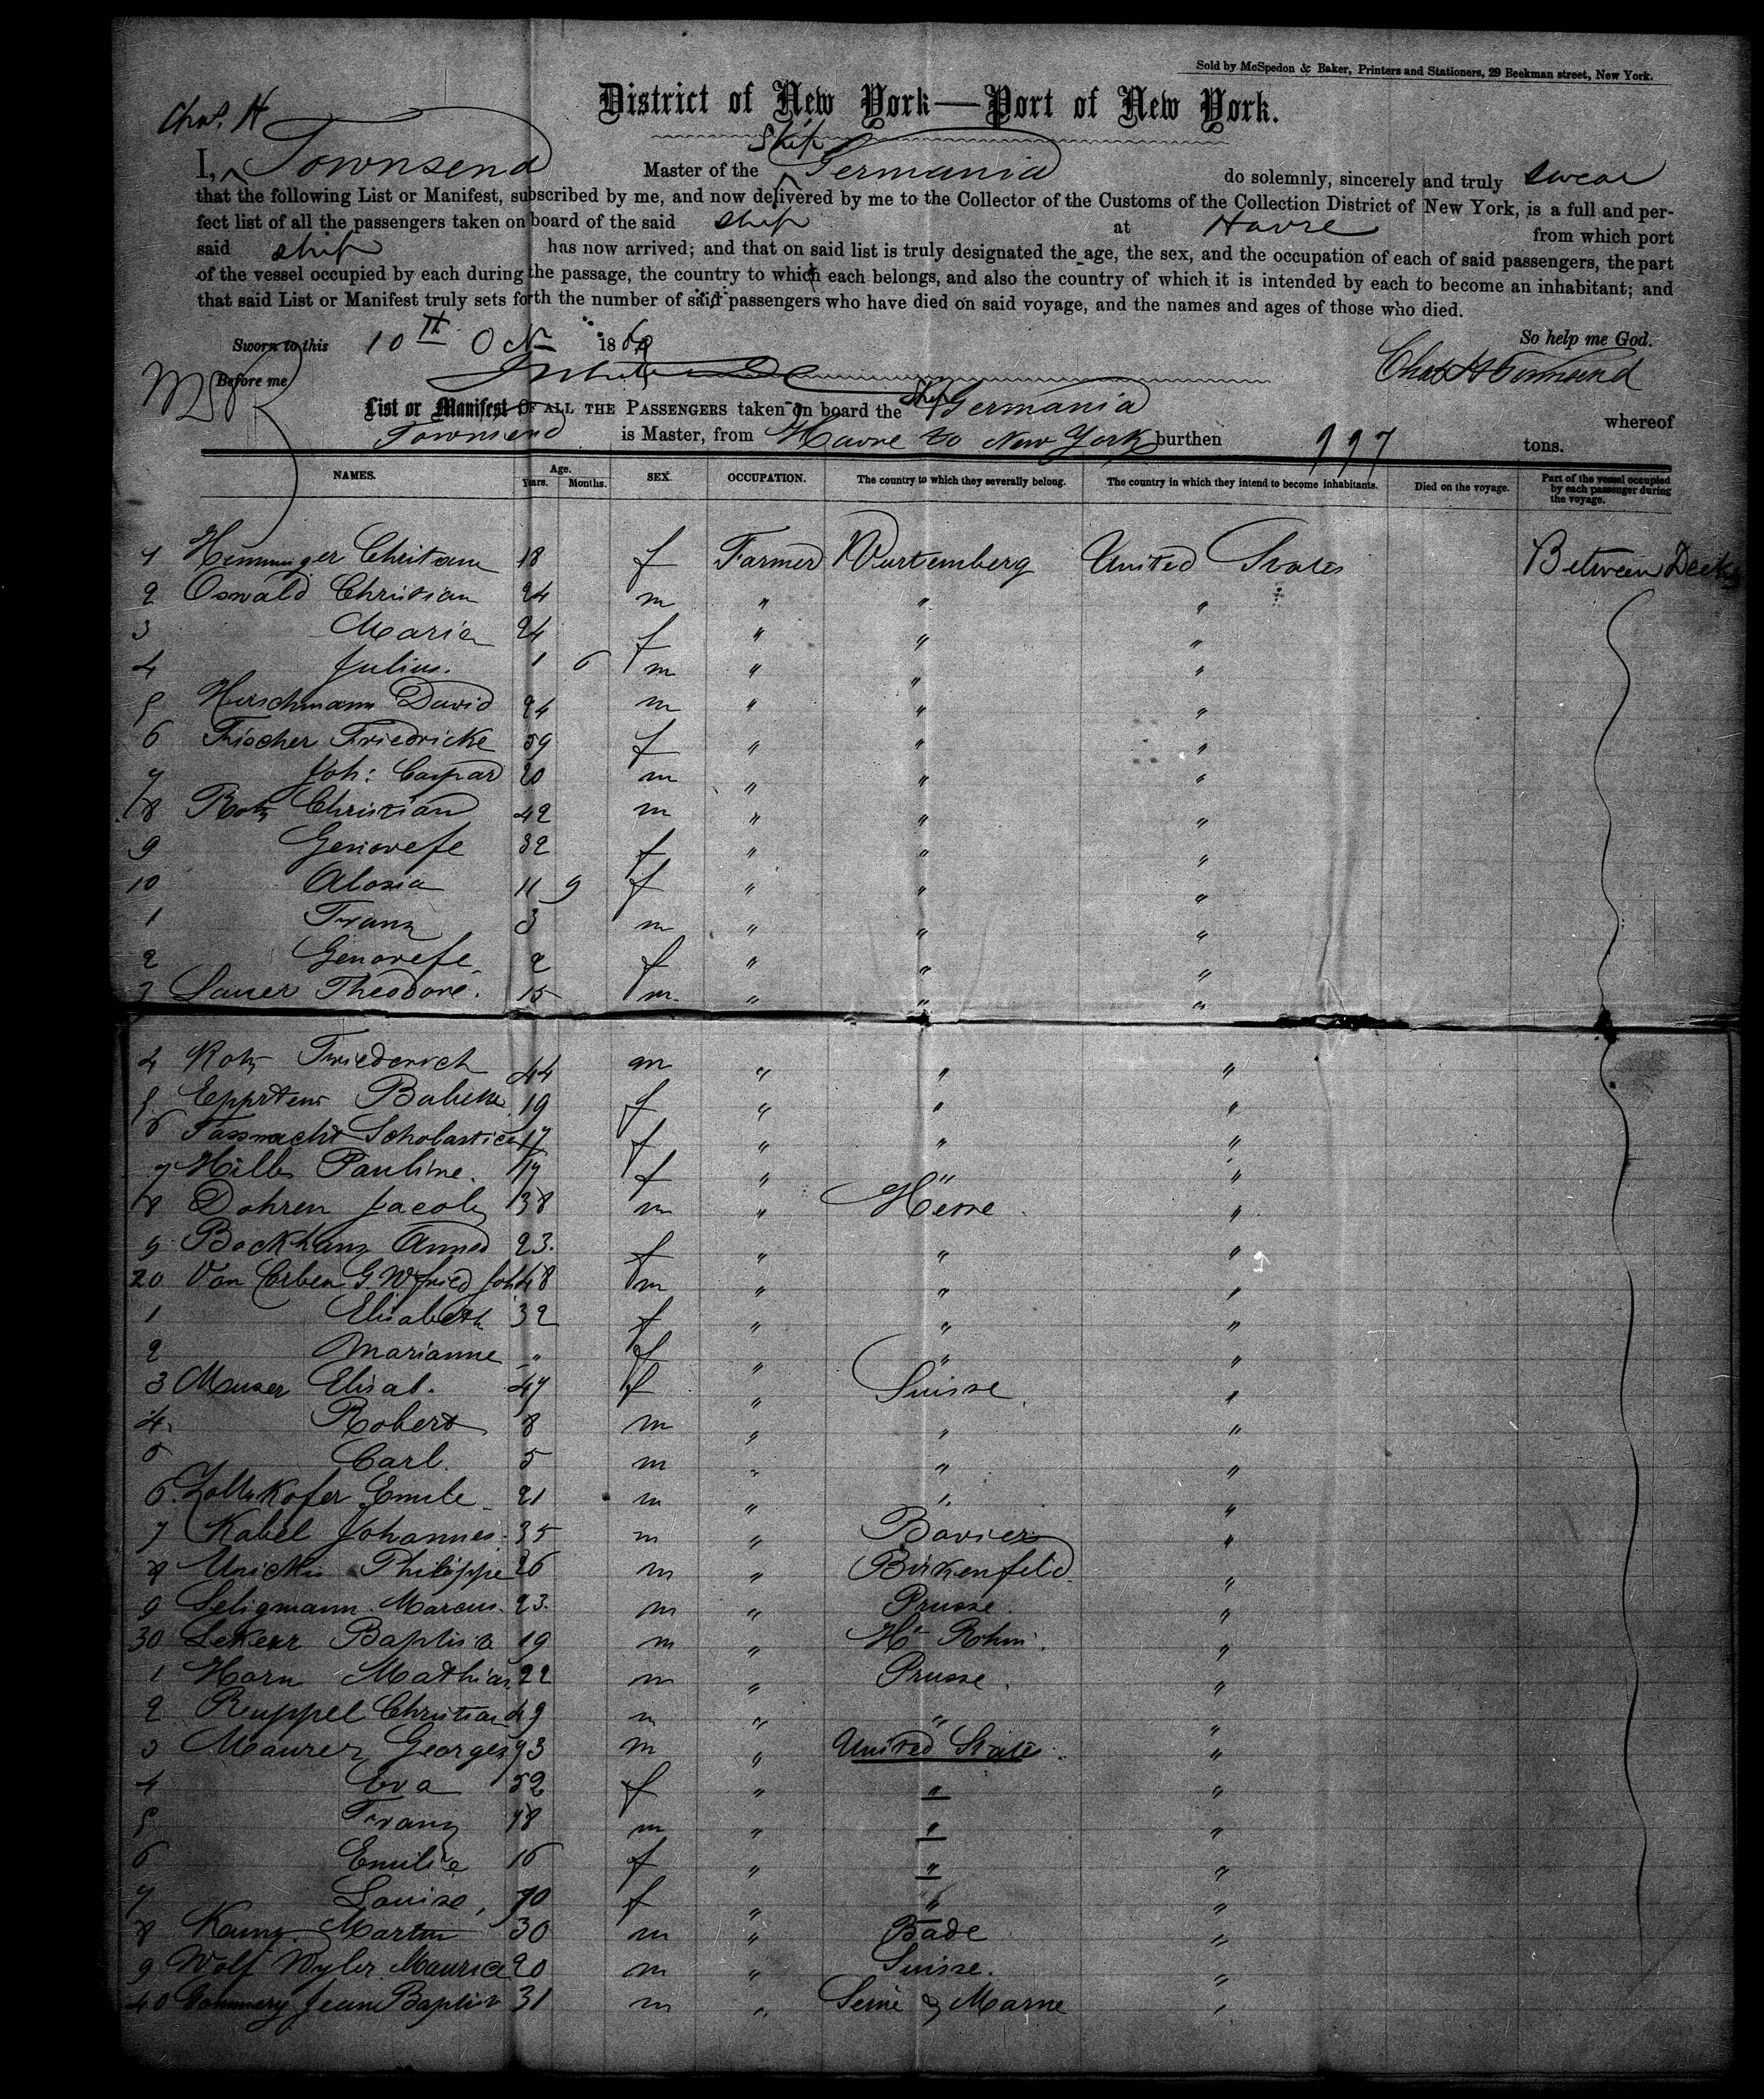 Sold by McSpedon & Baker, Printers and Stationers, 29 Beekman street, New York.
District of New York—Port of New York.
Chas. H
ship
I, Townsend Master of the Germania do solemnly, sincerely and truly swear
that the following List or Manifest, subscribed by me, and now delivered by me to the Collector of the Customs of the Collection District of New York, is a full and per-
fect list of all the passengers taken on board of the said ship at Havre from which port
said ship has now arrived; and that on said list is truly designated the age, the sex, and the occupation of each of said passengers, the part
of the vessel occupied by each during the passage, the country to which each belongs, and also the country of which it is intended by each to become an inhabitant; and
that said List or Manifest truly sets forth the number of said passengers who have died on said voyage, and the names and ages of those who died.
So help me God.
Sworn to this 10th Oct 1860
Chas H Townsend
Before me
List or Manifest OF ALL THE PASSENGERS taken on board the ship Germania whereof
Townsend is Master, from Havre to New York burthen 997 tons.
NAMES. Age. Years. Months. SEX. OCCUPATION. The country to which they severally belong. The country in which they intend to become inhabitants. Died on the voyage. Part of the vessel occupied by each passenger during the voyage.
1 Hemminger Christian 18 f Farmer Wurtemberg United States Between Decks
2 Oswald Christian 24 m " " "
3 Maria 24 f " " "
4 Julius. 1 6 m " " "
5 Hirschmann David 24 m " " "
6 Fischer Friedricke 59 f " " "
7 Joh: Caspar 20 m " " "
8 Rotz Christian 42 m " " "
9 Genovefe 32 f " " "
10 Alosia 11 9 f " " "
1 Franz 3 m " " "
2 Genovefe 2 f " " "
3 Lauer Theodore. 15 m " " "
4 Rotz Friederich 44 m " " "
5 19 f " " "
6 Fassnacht Scholastica 17 f " " "
7 Hills Pauline. 17 f " " "
8 Dohren Jacob 38 m " Hesse "
9 Anna 23. f " " "
20 Von 48 m " " "
1 Elisabeth 32 f " " "
2 Marianne " f " " "
3 Muser Elisab. 47 f " Suisse "
4 Robert 8 m " " "
5 Carl. 5 m " " "
6 Zollikofer Emile 21 m " " "
7 Kabel Johannes 35 m " Baviere "
8 Philippe 26 m " Birkenfeld "
9 Seligmann Marcus 23. m " Prusse. "
30 Baptista 19 m " Ht Rhin. "
1 Horn Mathias 22 m " Prusse. "
2 Ruppel Christian 49 m " " "
3 Maurer Georges 93 m " United States "
4 Eva 52 f " " "
5 Franz 18 m " " "
6 Emilie 16 f " " "
7 Louise, 10 f " " "
8 Martin 30 m " Bade "
9 Wolf Wyler Maurice 20 m " Suisse. "
40 Jean Baptist 31 m " Seine & Marne "